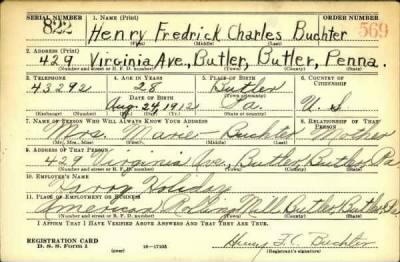 SERIAL NUMBER 1. NAME (Print) ORDER NUMBER
822 Henry Fredrick Charles Buchter 569
(First) (Middle) (Last)
2. ADDRESS (Print)
429 Virginia Ave., Butler, Butler, Penna.
(Number and street or R. F. D. number) (Town) (County) (State)
3. TELEPHONE 4. AGE IN YEARS 5. PLACE OF BIRTH 6. COUNTRY OF CITIZENSHIP
43292 28 Butler
DATE OF BIRTH (Town or county)
Aug. 24, 1912 Pa. U. S
(Exchange) (Number) (Mo.) (Day) (Yr.) (State or country)
7. NAME OF PERSON WHO WILL ALWAYS KNOW YOUR ADDRESS 8. RELATIONSHIP OF THAT PERSON
Mrs. Marie Buchter Mother
(Mr., Mrs., Miss) (First) (Middle) (Last)
9. ADDRESS OF THAT PERSON
429 Virginia Ave, Butler, Butler, Pa
(Number and street or R. F. D. number) (Town) (County) (State)
10. EMPLOYER'S NAME
Harry Holiday
11. PLACE OF EMPLOYMENT OR BUSINESS
American Rolling Mill Butler, Butler, Pa
(Number and street or R. F. D. number) (Town) (County) (State)
I AFFIRM THAT I HAVE VERIFIED ABOVE ANSWERS AND THAT THEY ARE TRUE.
REGISTRATION CARD
D. S. S. Form 1 (over) 16—17105 Henry F. C. Buchter
(Registrant's signature)